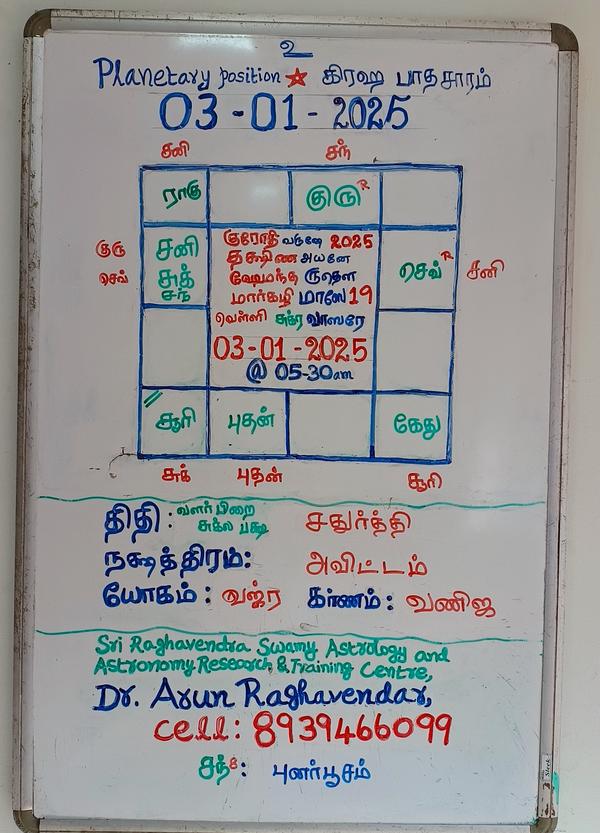 உ
Planetary position ★ கிரஹ பாதசாரம்
03-01-2025
சனி சந்
ராகு குரு R
குரு
செவ்
சனி
சுக்
சந்
குரோதி வருஷே 2025
தக்ஷிண அயனே
ஹேமந்த ருதௌ
மார்கழி மாஸே 19
வெள்ளி சுக்ர வாஸரே
03-01-2025
@ 05-30am
செவ் R
சனி
சூரி புதன் கேது
சுக் புதன் சூரி
திதி : வளர்பிறை சுக்ல பக்ஷ சதுர்த்தி
நக்ஷத்திரம்: அவிட்டம்
யோகம் : வஜ்ர கர்ணம் : வணிஜ
Sri Raghavendra Swamy Astrology and
Astronomy Research & Training Centre,
Dr. Arun Raghavendar,
Cell : 8939466099
சந் 8 : புனர்பூசம்